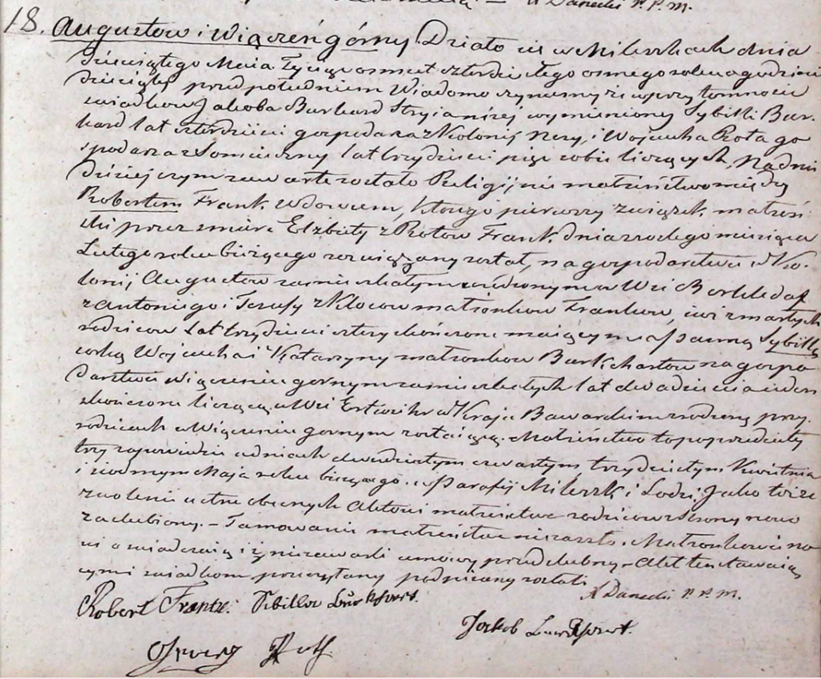 A Danecki P. P. M.
18. Augustow i Wiączeń górny Działo się w Mileszkach dnia
dziesiątego Maia tysiąc osmset czterdziestego osmego roku o godzinie
dziesiątej przed południem Wiadomo czynimy że w przytomności
świadkow Jakoba Burkard Stryia niżej wymienionej Sybilli Bur-
kard lat czterdzieści gospodarza z Kolonij Nery, i Woyciecha Rota go
spodarza z lat trzydzieści pięć sobie liczących, Na dniu
dzisiejszym zawarte zostało Religijne małżeństwo między
Robertem Frank Wdowcem, którego pierwszy związek małżeń-
ski przez śmierć Elżbiety z Rotow Frank dnia miesiąca
Lutego roku bieżącego rozwiązany został, na gospodarstwie w Ko-
lonij Augustow zamieszkałym urodzonym w Wsi
z Antoniego i Teresy z Klocow małżonkow Frankow, iuż zmarłych
rodzicow Lat trzydzieści cztery skończone maiącym a Panną Sybillą
corką Woyciecha i Katarzyny małżonkow Burkchartow na gospo
darstwie w Wiączeniu gornym zamieszkałych lat dwadzieścia ieden
skończone liczącą w Wsi w Kraju Bawarskim urodzoną przy
rodzicach w Wiączeniu gornym zostaiącą. Małżeństwo to poprzedziły
trzy zapowiedzie w dniach dwudziestym czwartym trzydziestym Kwietnia
i siodmym Maja roku bieżącego w Parafij Mileszki i Lodzi, Jako też ze
zwolenie ustne obecnych Aktowi małżeństwa rodzicow strony nowo
zaślubioney. – Tamowanie małżeństwa nie zaszło. Małżonkowie no
wi oświadczaią iż nie zawarli umowy przedślubney – Akt ten stawaią
cymi świadkom przeczytany podpisany został.
A Danecki P. P. M.
Robert Frank. Sibilla Burkhart.
Jakob Burkhart.
Georg Roth